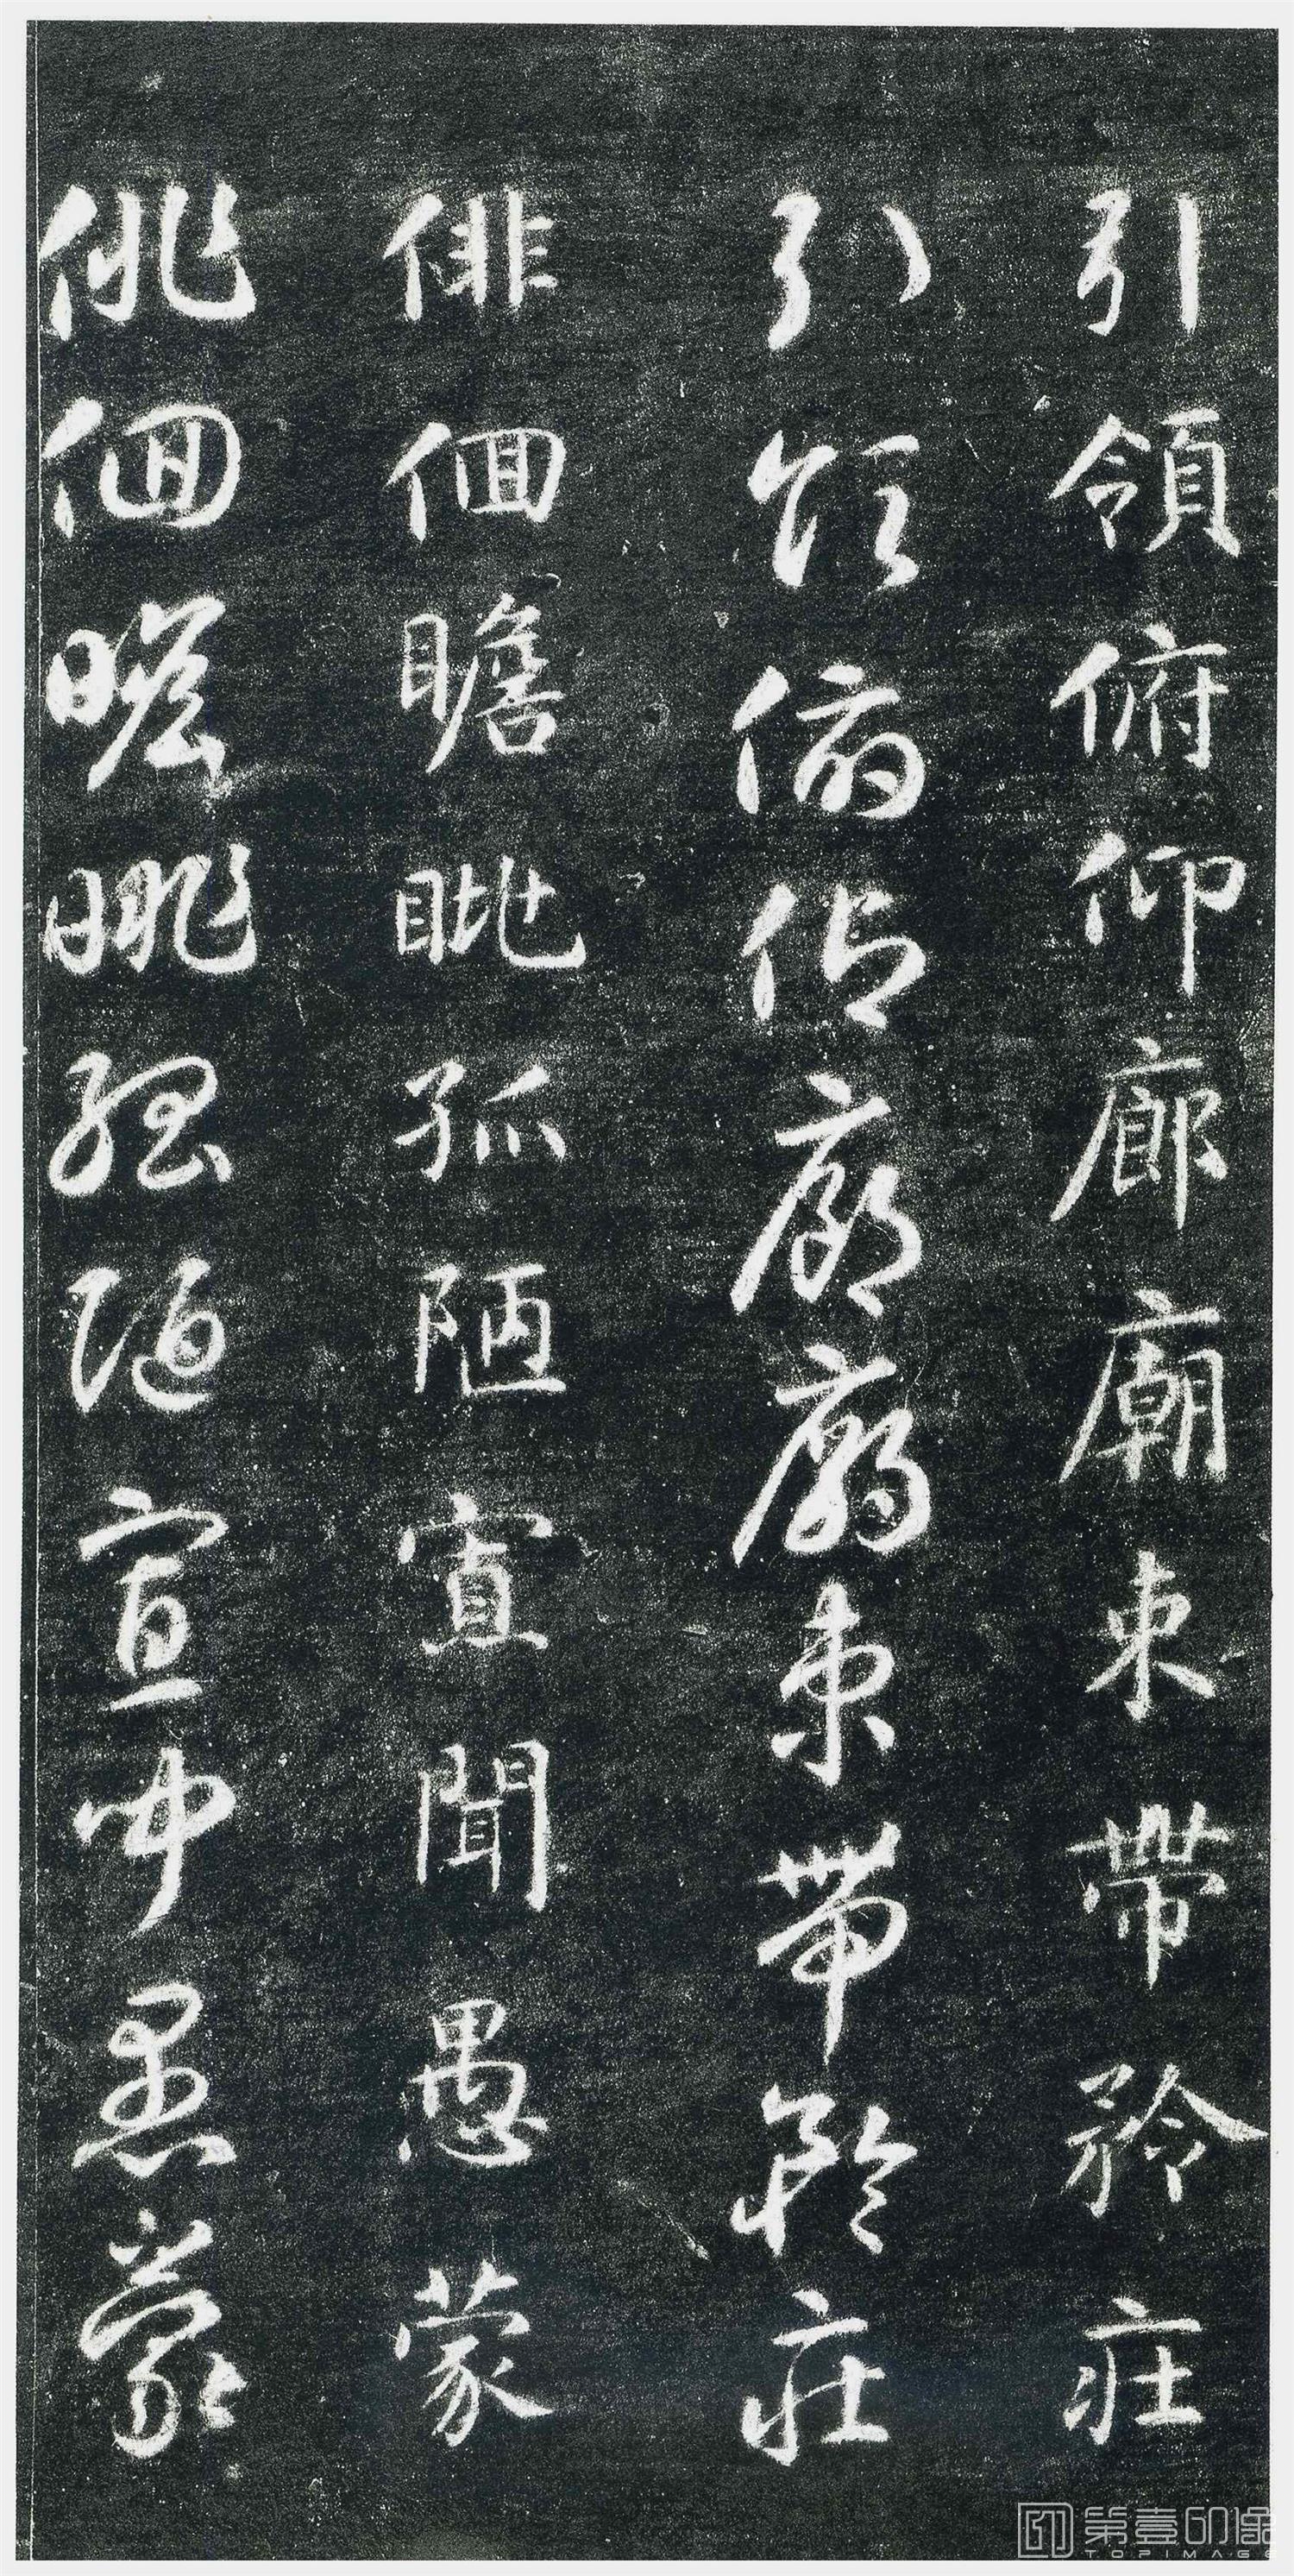 引領俯仰廊廟束帶矜莊
引領俯仰廊廟束帶矜莊
俳佪瞻眺孤陋寡聞愚蒙
俳佪瞻眺孤陋寡聞愚蒙
第壹印像
TOPIMAGE